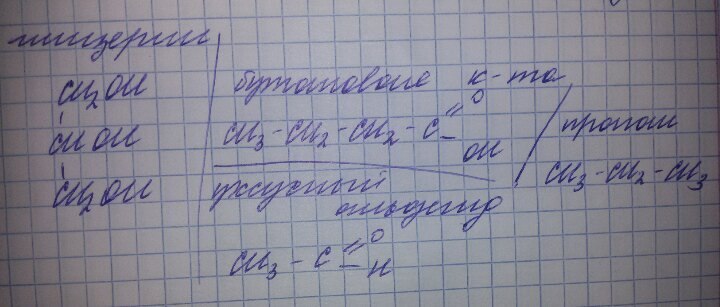 глицерин
CH2OH
CHOH
CH2OH
бутановая к-та
CH3-CH2-CH2-C=O
OH
уксусный
альдегид
CH3-C=O
-H
пропан
CH3-CH2-CH3